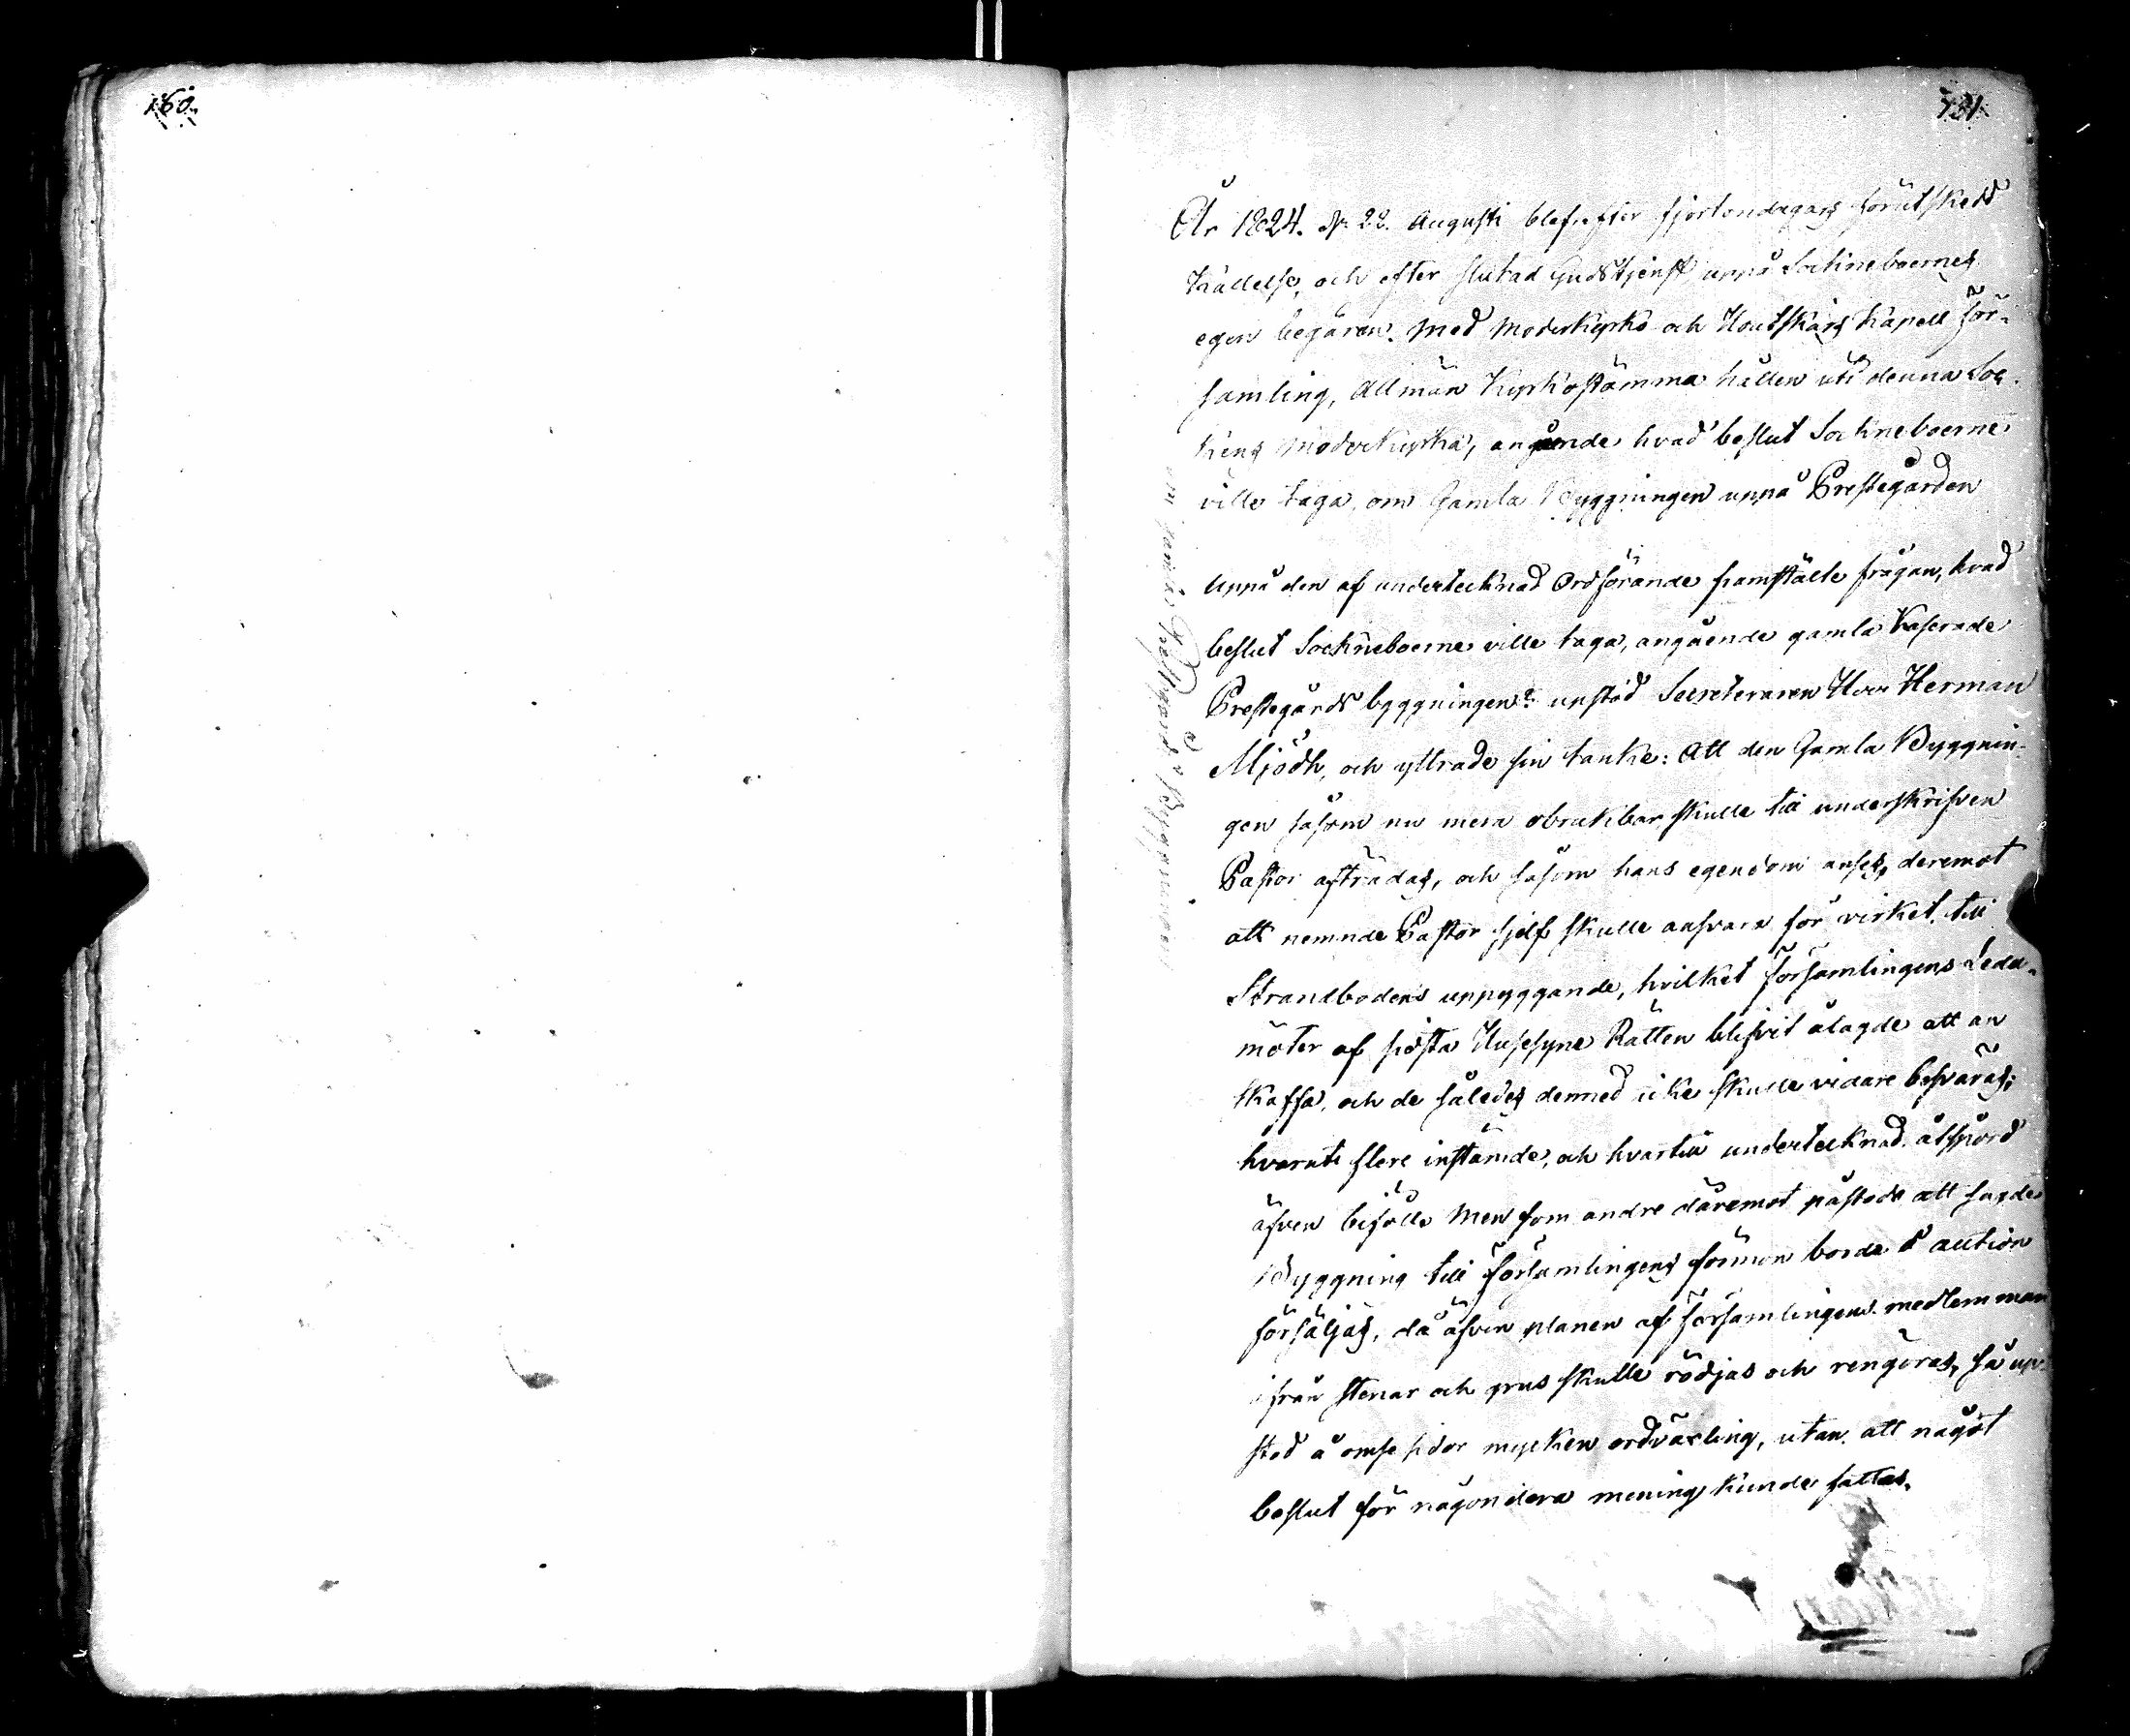 160.
131.
År 1824. d. 22. Augusti blef efter fjortondagars förutskedd
Kallelse, och efter slutad Gudstjenst, uppå Sockneboernes
egen begäran. med Moderkyrko och Houtskärs Kapell För-
samling, Allmän Kyrkostämma hållen uti denna Soc-
kens Moderkyrka, angående hvad beslut Sockneboerne
ville taga, om Gamla Byggningen uppå Prestegården
om gamla Prestgårds Byggningen
Uppå den af undertecknad Ordförande framstälte frågan, hvad
beslut Sockneboerne ville taga, angående gamla Kaserade
Prestegårds byggningen? upstod Secreteraren Herr Herman
Mjödh, och yttrade sin tanke: Att den Gamla Byggnin-
gen såsom nu mera obrukbar skulle till underskrifven
Pastor afträdas, och såsom hans egendom anses, deremot
att nemnde Pastor sjelf skulle ansvara för virket till
Strandbodens uppyggande, hvilket Församlingens Leda-
möter af sidsta Husesyne Rätten blifvit ålagde att an
skaffa, och de således dermed icke skulle vidare besväras;
hvaruti flere instämde, och hvartill undertecknad åtspord
äfven biföll. Men som andre däremot påstode att sagde
Byggning till Församlingens förmon borde å auction
försäljas, då äfven planen af Församlingens medlemmar
ifrån stenar och grus skulle rödjas och rengöras, så up-
stod å omse sidor mycken ordväxling, utan att något
beslut för någondera mening kunde fattas.